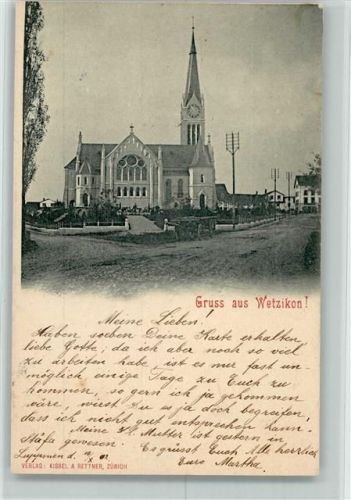 Gruss aus Wetzikon!
Meine Lieben!
Haben soeben Deine Karte erhalten,
liebe Gotte; da ich aber noch so viel
zu arbeiten habe ist es mir fast un-
möglich, einige Tage zu Euch zu
kommen, so gern ich ja gekommen
wäre, wirst Du es ja doch begreifen,
dass ich nicht gut entsprechen kann.
Meine Mutter ist gestern in
Stäfa gewesen. Es grüsst Euch Alle herzlich
Eure Martha.
VERLAG: KISSEL & RETTNER, ZÜRICH